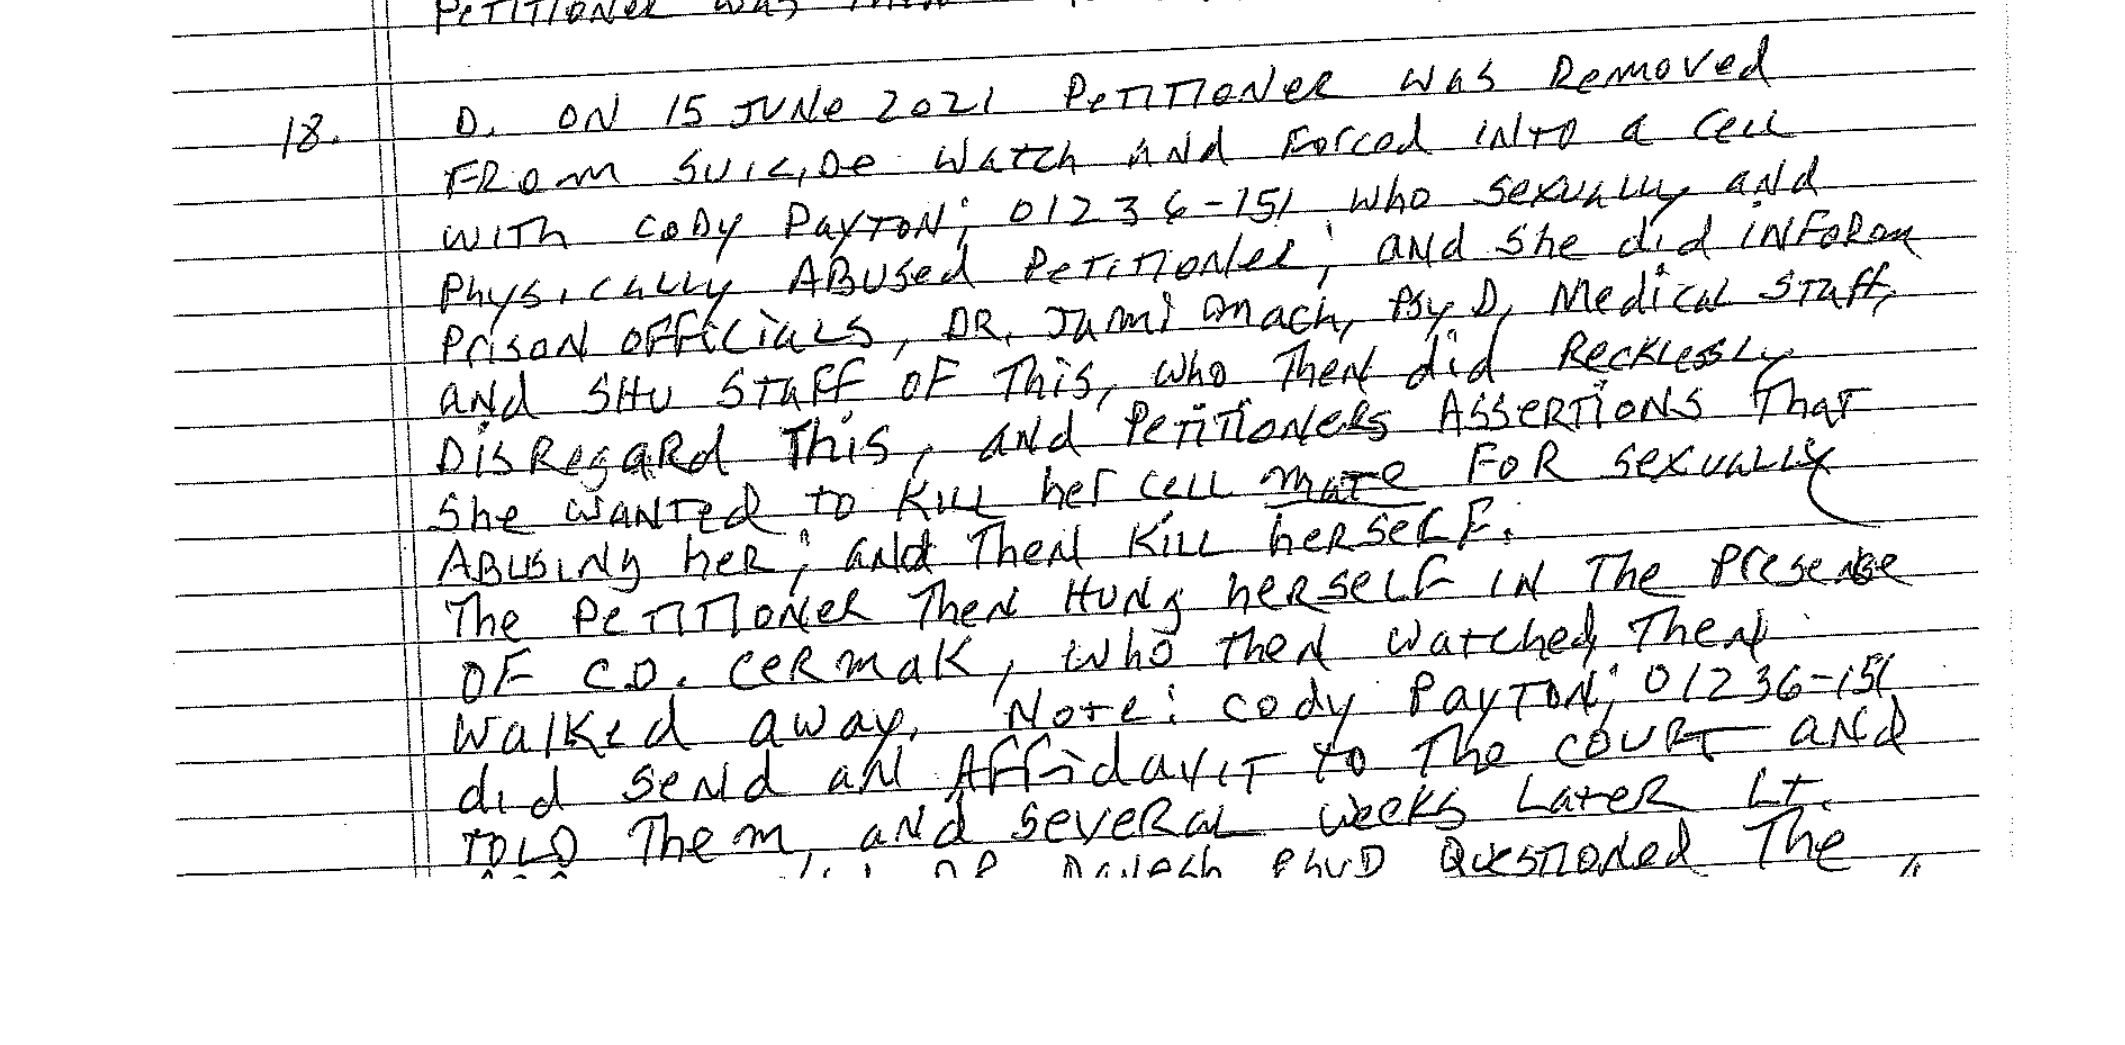 Petitioner was then
18. D. ON 15 JUNe 2021 PeTITIONeR was Removed
FROm SUICiDe Watch ANd Forced iNTO a Cell
WITH CODy PAyTON; 01236-151 who sexually and
Physically ABUSed PeTiTioNeR; aNd She did iNFoRm
PrisoN officials, DR. Jami mach, Psy D, Medical Staff,
aNd SHU STaff OF This, who TheN did Recklessly
DisRegaRd This, aNd PeTiTioNeRs AssertioNs That
She waNTed to KiLL her CeLL mate FOR sexually
ABUSiNg heR; aNd TheN KiLL heRseLF.
The PeTITioNeR TheN HUNg heRseLF iN The PreseNce
OF C.O. CeRmaK, who theN watched, TheN
walKed away. Note: Cody PayToN; 01236-151
did SeNd aN AffidaviT to The COURT aNd
TOLD Them, aNd SeveRaL weeks Later Lt.
DR PhyD QuesTioNed The